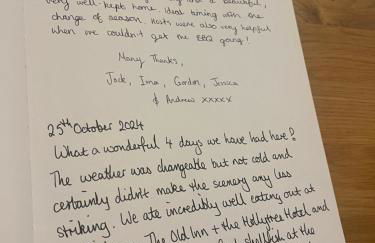 very well-kept home. Ideal timing with the
change of season. Hosts were also very helpful
when we couldn't get the BBQ going!
Many Thanks,
Jack, Ima, Gordon, Jessica
& Andrew xxxxx
25th October 2024
What a wonderful 4 days we have had here!
The weather was changeable but not cold and
certainly didn't make the scenery any less
striking. We ate incredibly well eating out at
The Old Inn + the Hollytree Hotel and
shellfish at the